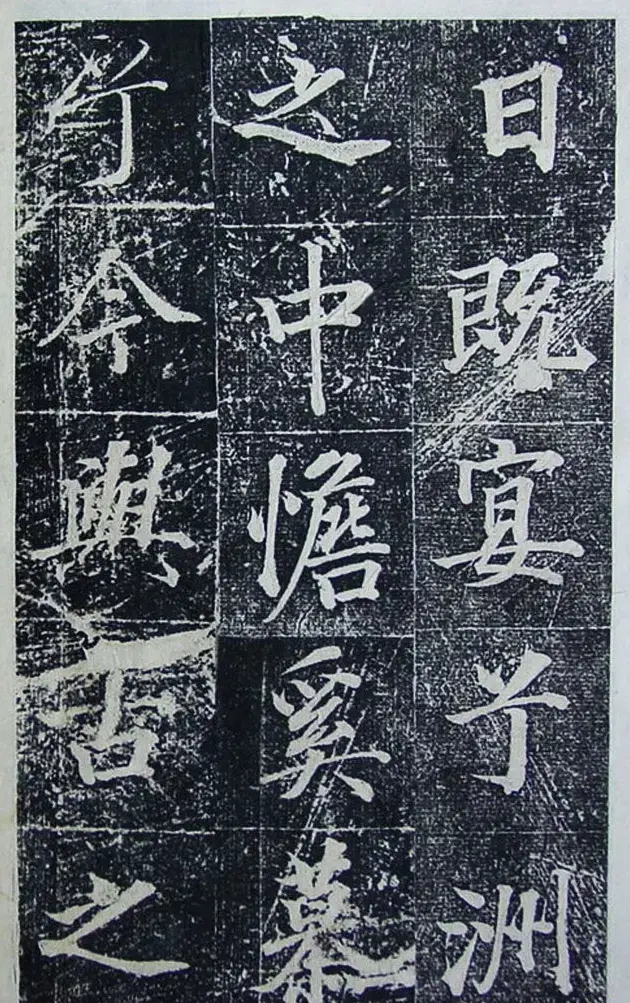 日既宴兮洲
之中憺奚慕
兮今與古之